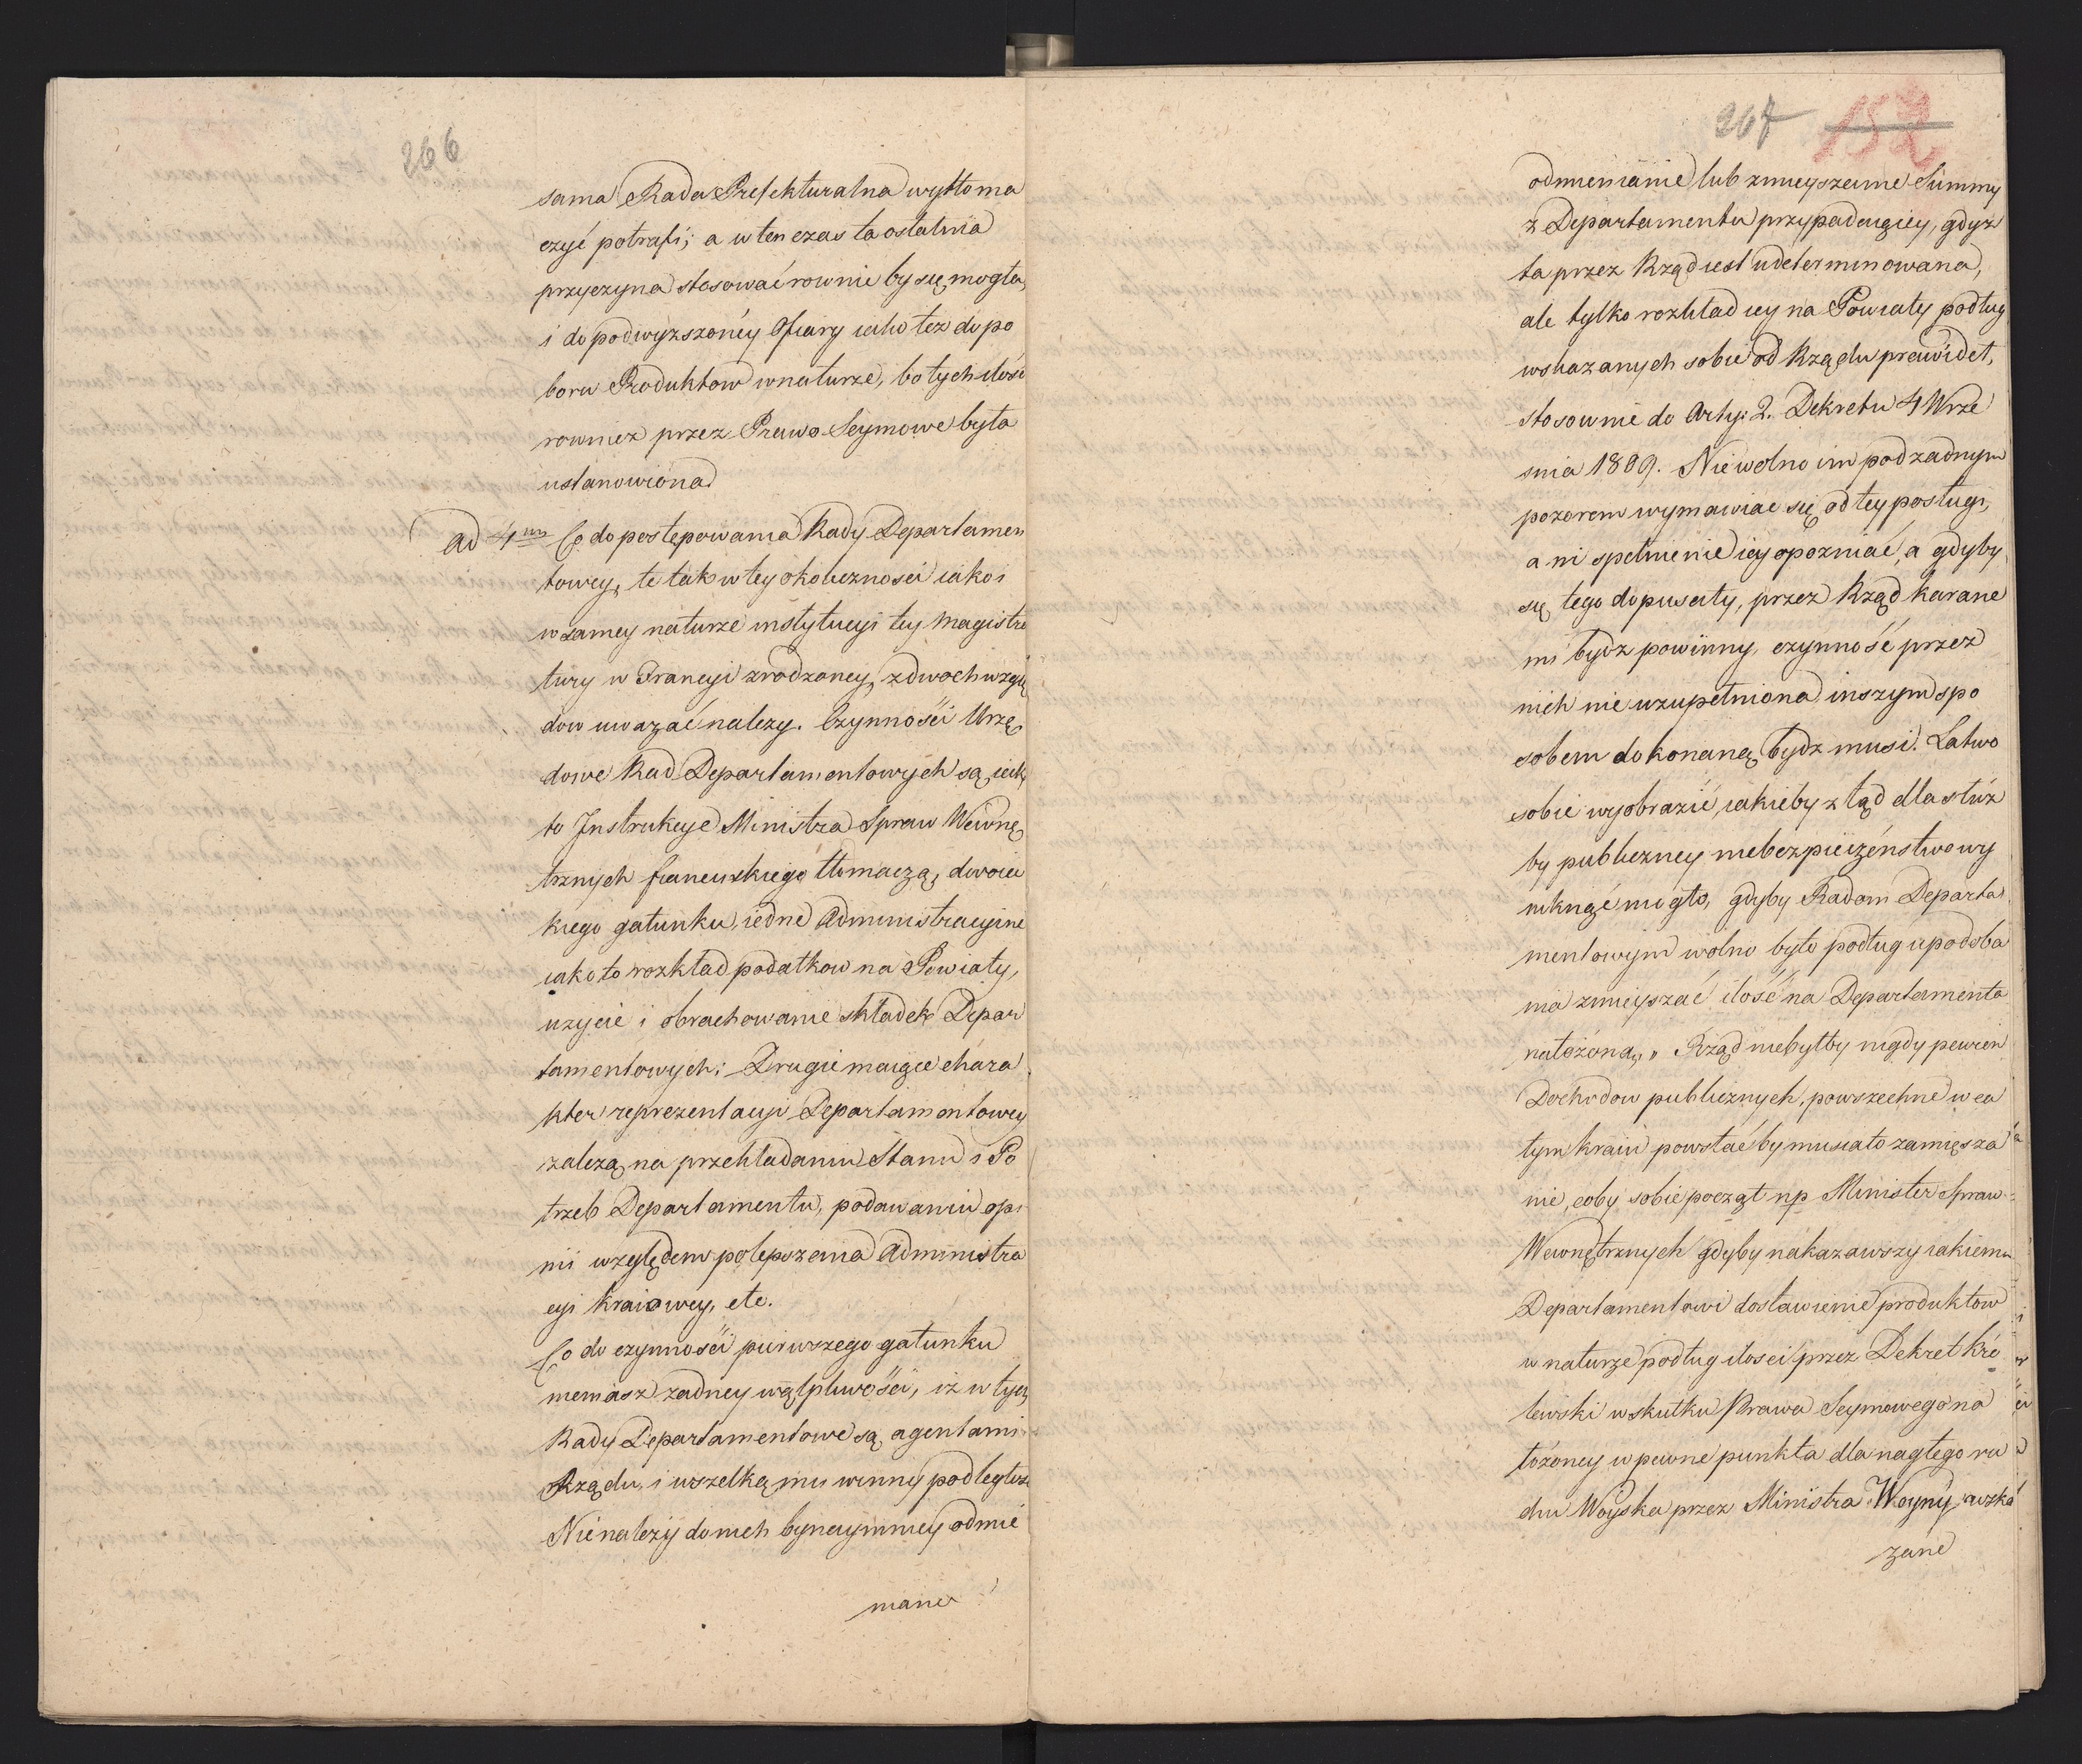 266
sama Rada Prefekturalna wytłoma
czyć potrafi; a w ten czas ta ostatnia
przyczyna stosować rownie by się mogła,
i do podwyższoney Ofiary iako też do po
boru Produktow w naturze, bo tych ilość
rownież przez Prawo Seymowe była
ustanowiona
ad 4um Co do postępowania Rady Departamen
towey, te tak w tey okoliczności iako i
w samey naturze instytucyi tey Magistra
tury w Francyi zrodzoney, z dwoch wzglę
dow uważać należy. Czynności Urzę
dowe Rad Departamentowych są, iak
to Instrukcye Ministra Spraw Wewnę
trznych francuzkiego tłomaczą, dwoia
kiego gatunku, iedne Administracyine
iako to rozkład podatkow na Powiaty,
użycie i obrachowanie składek Depar
tamentowych; Drugie maiące chara
kter reprezentacyi Departamentowey
zależą na przekładaniu Stanu i Po
trzeb Departamentu, podawaniu opi
nii względem polepszenia Administra
cyi kraiowey, etc.
Co do czynności pierwszego gatunku
niemasz żadney wątpliwości, iż w tych
Rady Departamentowe są agentami
Rządu, i wszelką mu winny podległość
Nie należy do nich bynaymniey odmie
nianie
267 152
odmienianie lub zmieyszenie Summy
z Departamentu przypadaiącey, gdyż
ta przez Rząd iest udeterminowana,
ale tylko rozkład iey na Powiaty podług
wskazanych sobie od Rządu prawideł,
stosownie do Arty: 2. Dekretu 4 Wrze
śnia 1809. Nie wolno im pod żadnym
pozorem wymawiać się od tey posługi,
ani spełnienie iey opozniać, a gdyby
się tego dopuściły, przez Rząd karane
mi bydź powinny, czynność przez
nich nie uzupełniona inszym spo
sobem dokonaną bydź musi. Łatwo
sobie wyobrazić, iakieby ztąd dla służ
by publiczney niebezpieczeństwo wy
niknąć mogło, gdyby Radom Departa
mentowym wolno było podług upodoba
nia zmieyszać ilość na Departamenta
nałożoną, Rząd niebyłby nigdy pewien
Dochodow publicznych, powszechne w ca
łym kraiu powstać by musiało zamięsza
nie, coby sobie począł np Minister Spraw
Wewnętrznych gdyby nakazawszy iakiemu
Departamentowi dostawienie produktow
w naturze podług ilości przez Dekret Kró
lewski w skutku Prawa Seymowego na
łożoney w pewne punkta dla nagłego ra
dun Woyska przez Ministra Woyny wska
zane